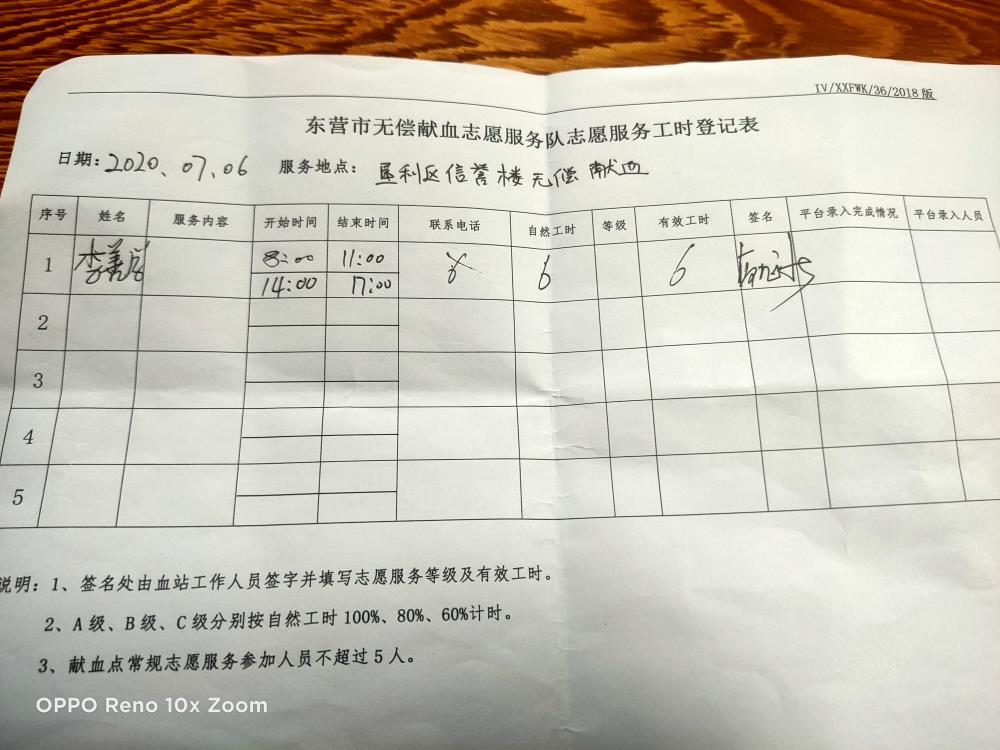 IV/XXFWK/36/2018版
东营市无偿献血志愿服务队志愿服务工时登记表
日期：2020、07、06 服务地点：垦利区信誉楼无偿献血
序号 姓名 服务内容 开始时间 结束时间 联系电话 自然工时 等级 有效工时 签名 平台录入完成情况 平台录入人员
1 李 8:00 11:00 6 6
14:00 17:00
2
3
4
5
说明：1、签名处由血站工作人员签字并填写志愿服务等级及有效工时。
2、A 级、B 级、C 级分别按自然工时 100%、80%、60%计时。
3、献血点常规志愿服务参加人员不超过 5 人。
OPPO Reno 10x Zoom